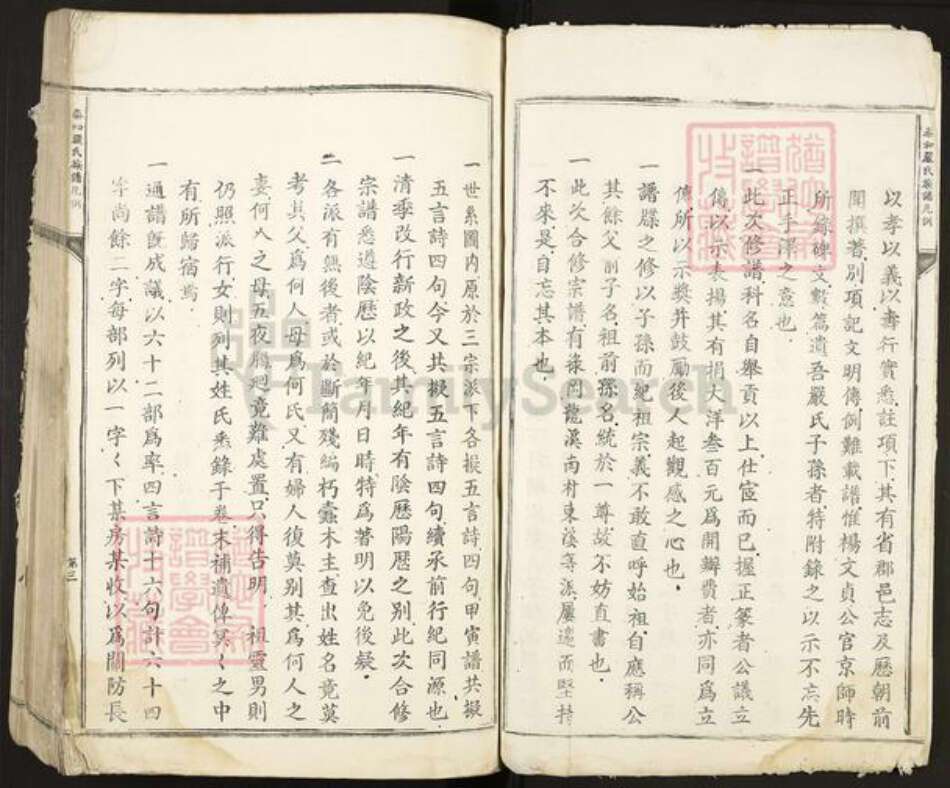 泰和嚴氏族譜凡例
以孝以義以壽行實悉註項下其有省郡邑志及歷朝前
開撰著別項記文明傳例難載譜惟楊文貞公官京師時
所錄碑文數篇遺吾嚴氏子孫者特附錄之以示不忘先
正手澤之意也
一此次修譜科名自舉貢以上仕宦而已握正篆者公議立
傳以示表揚其有捐大洋叁百元爲開辦費者亦同爲立
傳所以示獎并鼓勵後人起觀感之心也
一譜牒之修以子孫而紀祖宗義不敢直呼始祖自應稱公
其餘父前子名祖前孫名統於一尊故不妨直書也
一此次合修宗譜有祿岡龍溪南村東溪等派屢邀而堅持
不來是自忘其本也
一世系圖內原於三宗派下各擬五言詩四句甲寅譜共擬
五言詩四句今又共擬五言詩四句續承前行紀同源也
一清季改行新政之後其紀年有陰歷陽歷之別此次合修
宗譜悉遵陰歷以紀年月日時特爲著明以免後疑
一各派有無後者或於斷簡殘編朽蠹木主查出姓名竟莫
考其父爲何人母爲何氏又有婦人復莫別其爲何人之
妻何人之母五夜腸迴竟難處置只得告明 祖靈男則
仍照派行女則列其姓氏悉錄于卷末補遺俾冥〱之中
有所歸宿焉
一通譜旣成議以六十二部爲率四言詩十六句計六十四
字尚餘二字每部列以一字〱下某房某收以爲關防長
泰和嚴氏族譜凡例
第三
FamilySearch